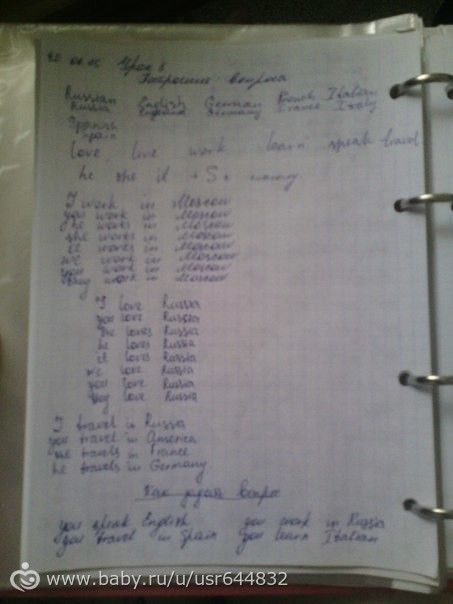 Урок
Построение вопроса
Russian English German French Italian
Russia England Germany France Italy
Spanish
Spain
love, live work learn speak travel
he she it +S+
I work in Moscow
you work in Moscow
he works in Moscow
she works in Moscow
it works in Moscow
we work in Moscow
you work in Moscow
they work in Moscow
I love Russia
you love Russia
she loves Russia
he loves Russia
it loves Russia
we love Russia
you love Russia
they love Russia
I travel in Russia
you travel in America
she travels in France
he travels in Germany
Как задать вопрос
you speak English you work in Russia
you travel in Spain you learn Italian
www.baby.ru/u/usr644832